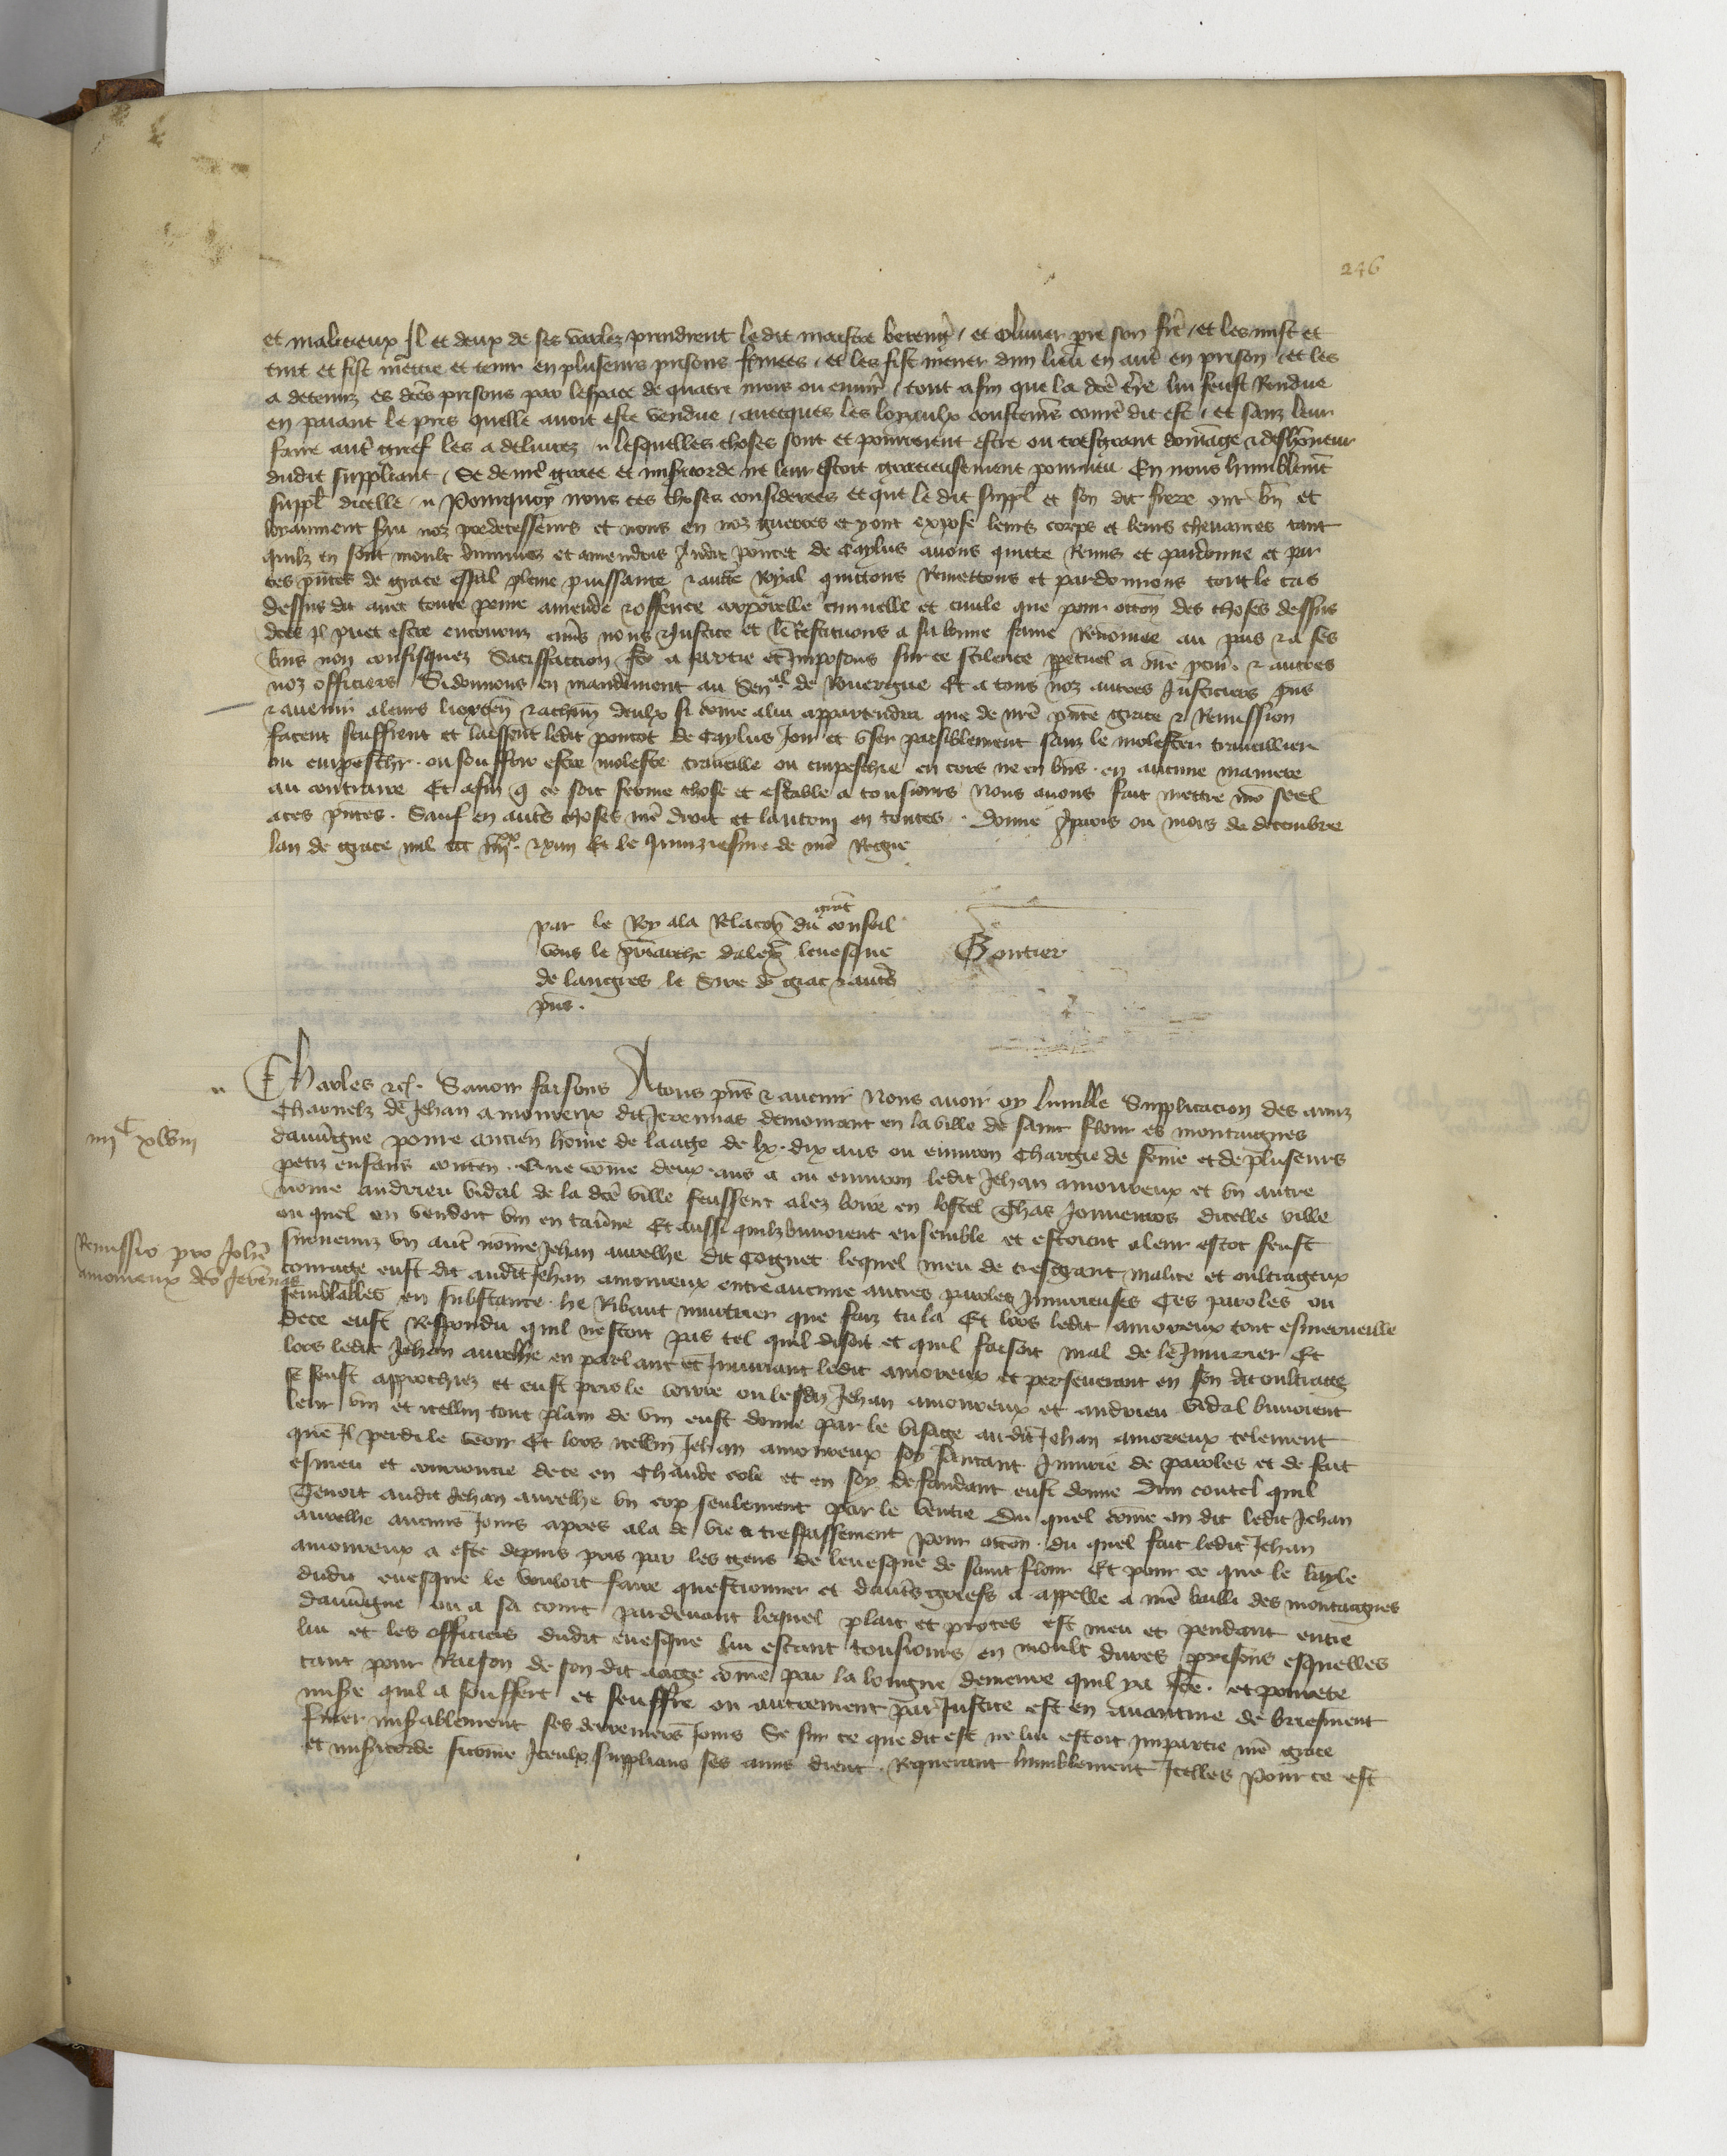 246
et malicieux Il et deux de ses varlez prindrent ledit maistre et Olivier pre son fre / et les mist et
tint et fist mettre et tenir en pluseurs prisons fermees / et les fist mener dun lieu en aut en prison / et les
a detenuz es dces prisons par lespace de quatre mois ou envir / tout afin que la dce tre lui feust Rendue
en paiant le pris quelle avoit este vendue / avecques les loyaulx coustemes come dit est / et sanz leur
faire aut grief les a delivrez lesquelles choses sont et pourroient estre ou tresgrant domage & deshoneur
dudit suppliant / Se de nre grace et misericorde ne leur estoit gracieusement pourveu En nous humblemt
suppl dicelle Pourquoy nous ces choses considerees et que le dit suppl et son dit frere ont bn et
loyaument svu noz predecesseurs et nous en noz guerres et y ont expose leurs corps et leurs chevances tant
quilz en sont moult diminuez et amendris Audit Poncet de Caylus avons quicte Remis et pardonne et par
ces pntes de grace espal pleine puissance & aucte Royal quictons Remettons et pardonnons tout le cas
dessus dit avec toute peine amende & offence corporelle criminelle et civile que pour occon des choses dessus
dces il puet estre encouruz envs nous & Justice et le Restituons a sa bonne fame Renomee au pais & a ses
bns non confisquez Satisfaction fce a partie et Imposons sur ce scilence ppetuel a nre pcur & autres
noz officiers Si donnons en mandement au Senal de Rouergue Et a tous noz autres Justiciers pns
& avenir a leurs lieuxten & a chun deulx si come a lui appartendra que de nre pnte grace & Remission
facent seuffrent et laissent ledit poncet de Caylus Joir et user paisiblement sanz le molester travaillier
ou empeschr ou souffrir estre moleste traveille ou empeschie en cors ne en bns en aucune maniere
au contraire Et afin q ce soit ferme chose et estable a tousiours Nous avons fait mettre nre seel
a ces pntes Sauf en autes choses nre droit et lautruy en toutes Donne a paris ou mois de decembre
lan de grace mil ccc iiiixx & xiiii Et le quinziesme de nre Regne
par le Roy a la Relacon du grat conseil
vous le priarche dalex levesque
de langres le Sire de & autes
pns
Gontier
Charles &c. Savoir faisons A tous pns & avenir Nous avoir oy lumble Supplicacion des amiz
charnelz de Jehan amoureux dit Jeremias demourant en la ville de saint flour es montaignes
dauvgne povre ancien home de laage de lx dix ans ou environ Chargie de feme et de pluseurs
petiz enfans conten Que come deux ans a ou environ ledit Jehan amoureux et un autre
nome andrieu vidal de la dce ville feussent alez boire en lostel dicelle ville
ou quel on vendoit vin en tavne Et aussi quilz buvoient ensemble et estoient a leur escot feust
survenuz un aut nome Jehan aurelhe dit Coignet lequel meu de tresgrant malice et oultrageux
courage eust dit audit Jehan amoureux entre aucune autres paroles Injurieuses Ces paroles ou
semblables en substance he Ribaut murtrier que faiz tu la Et lors ledit amoureux tout esmerveille
de ce eust Respondu quil nestoit pas tel quil disoit et quil faisoit mal de le Injurier Et
lors ledit Jehan aurelhe en parlant et Injuriant ledit amoureux et perseverant en son dit oultrage
se feust approchiez et eust pris le voirre ou lesdiz Jehan amoureux et andrieu vidal buvoient
leur vin et icellui tout plain de vin eust donne par le visage audit Jehan amoureux telement
que Il perdi le veoir Et lors icellui Jehan amoureux soy santant Injurie de paroles et de fait
esmeu et courroucie de ce en chaude cole et en soy defandant eust donne dun coutel quil
tenoit audit Jehan aurelhe un cop seulement par le ventre Du quel come on dit ledit Jehan
aurelhe aucuns Jours apres ala de vie a trespassement Pour occon du quel fait ledit Jehan
amoureux a este depuis pris par les gens de levesque de saint flour Et pour ce que le bayle
dudit evesque le vouloit faire questionner et dautes griefs a appelle a nre bailli des montaignes
dauvgne ou a sa court pardevant lequel plait et proces est meu et pendant entre
lui et les officiers dudit evesque lui estant tousiours en moult dures prisons esquelles
tant pour Raison de son dit aage come par la longue demeure quil y a fce et povrete
misere quil a souffert et seuffre ou autrement par Justice est en avanture de briesment
finer misablement ses derreniers Jours Se sur ce que dit est ne lui estoit Impartie nre grace
et misicorde sicome Iceulx supplians ses amis dient Requerant humblement Icelles Pour ce est
iiiC xlviii
Remissio pro Johe
amoureux dco Jeremias